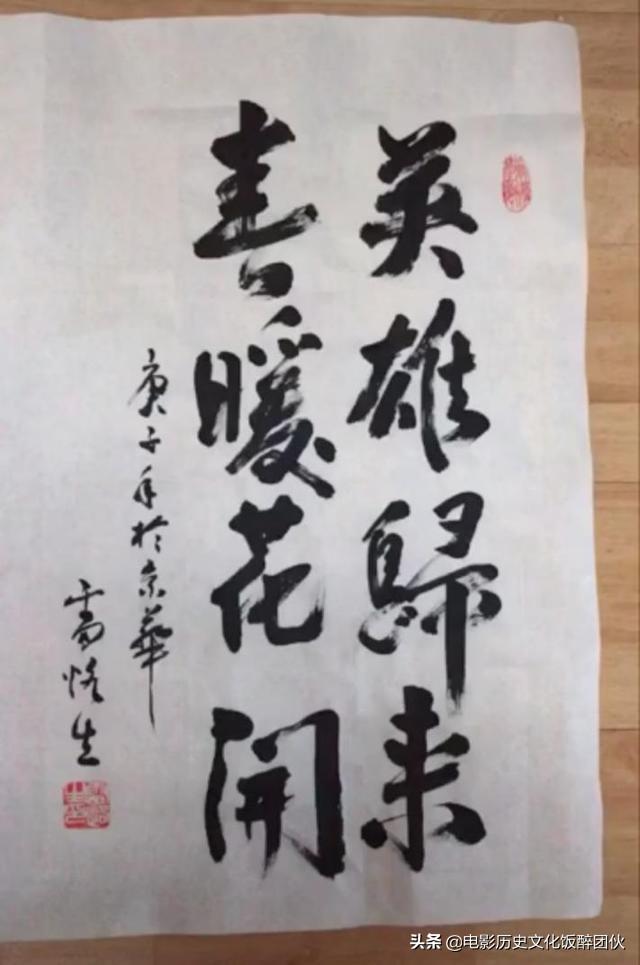 英雄歸来
春暖花開
庚子年於京華
雷恪生
头条 @电影历史文化饭醉团伙